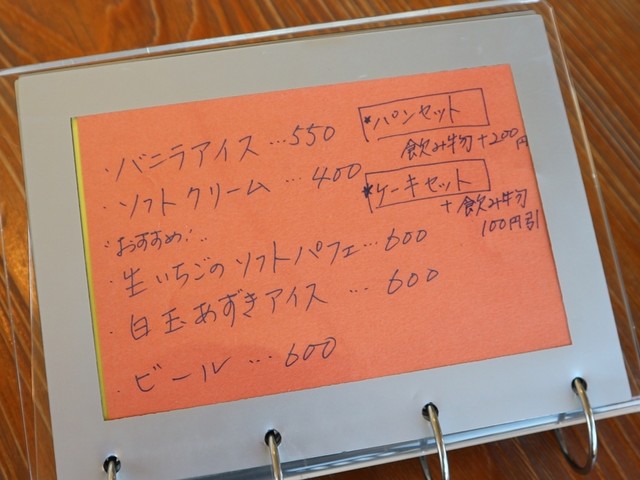 ・バニラアイス…550
・ソフトクリーム…400
おすすめ!..
・生いちごのソフトパフェ…600
・白玉あずきアイス…600
・ビール…600
*パンセット
飲み物+200円
*ケーキセット
+飲み物
100円引